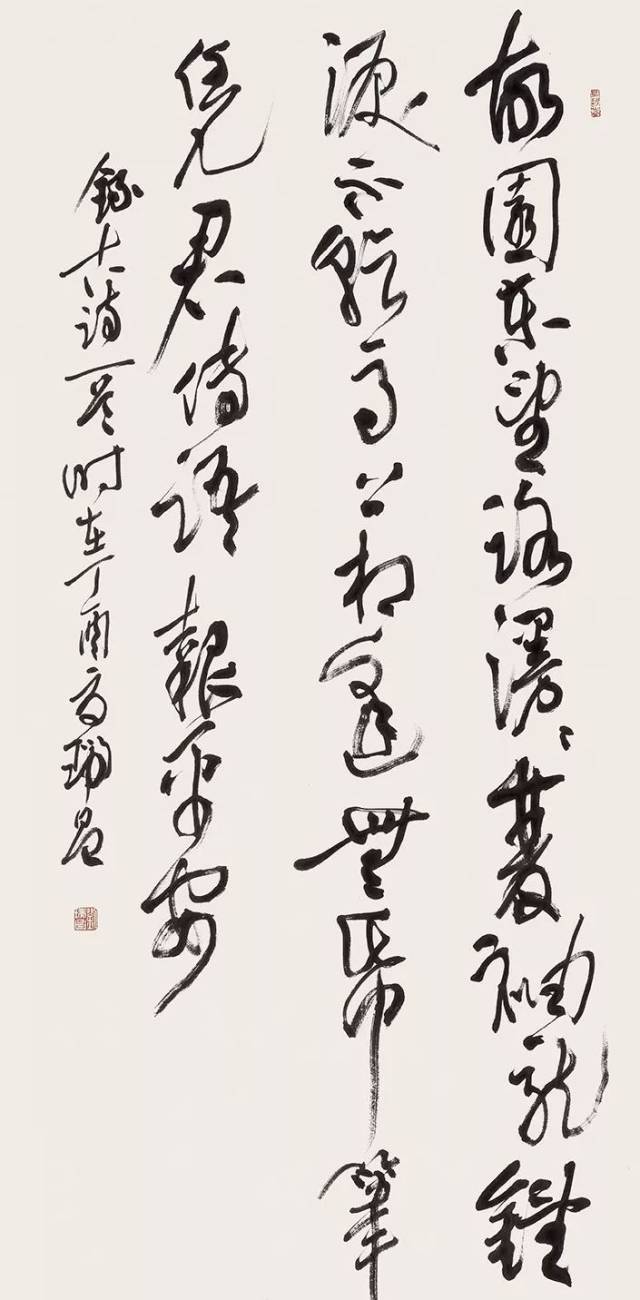 故園東望路漫漫雙袖龍鐘
淚不乾馬上相逢無帋筆
凭君傳語報平安
錄古詩一首时在丁酉高